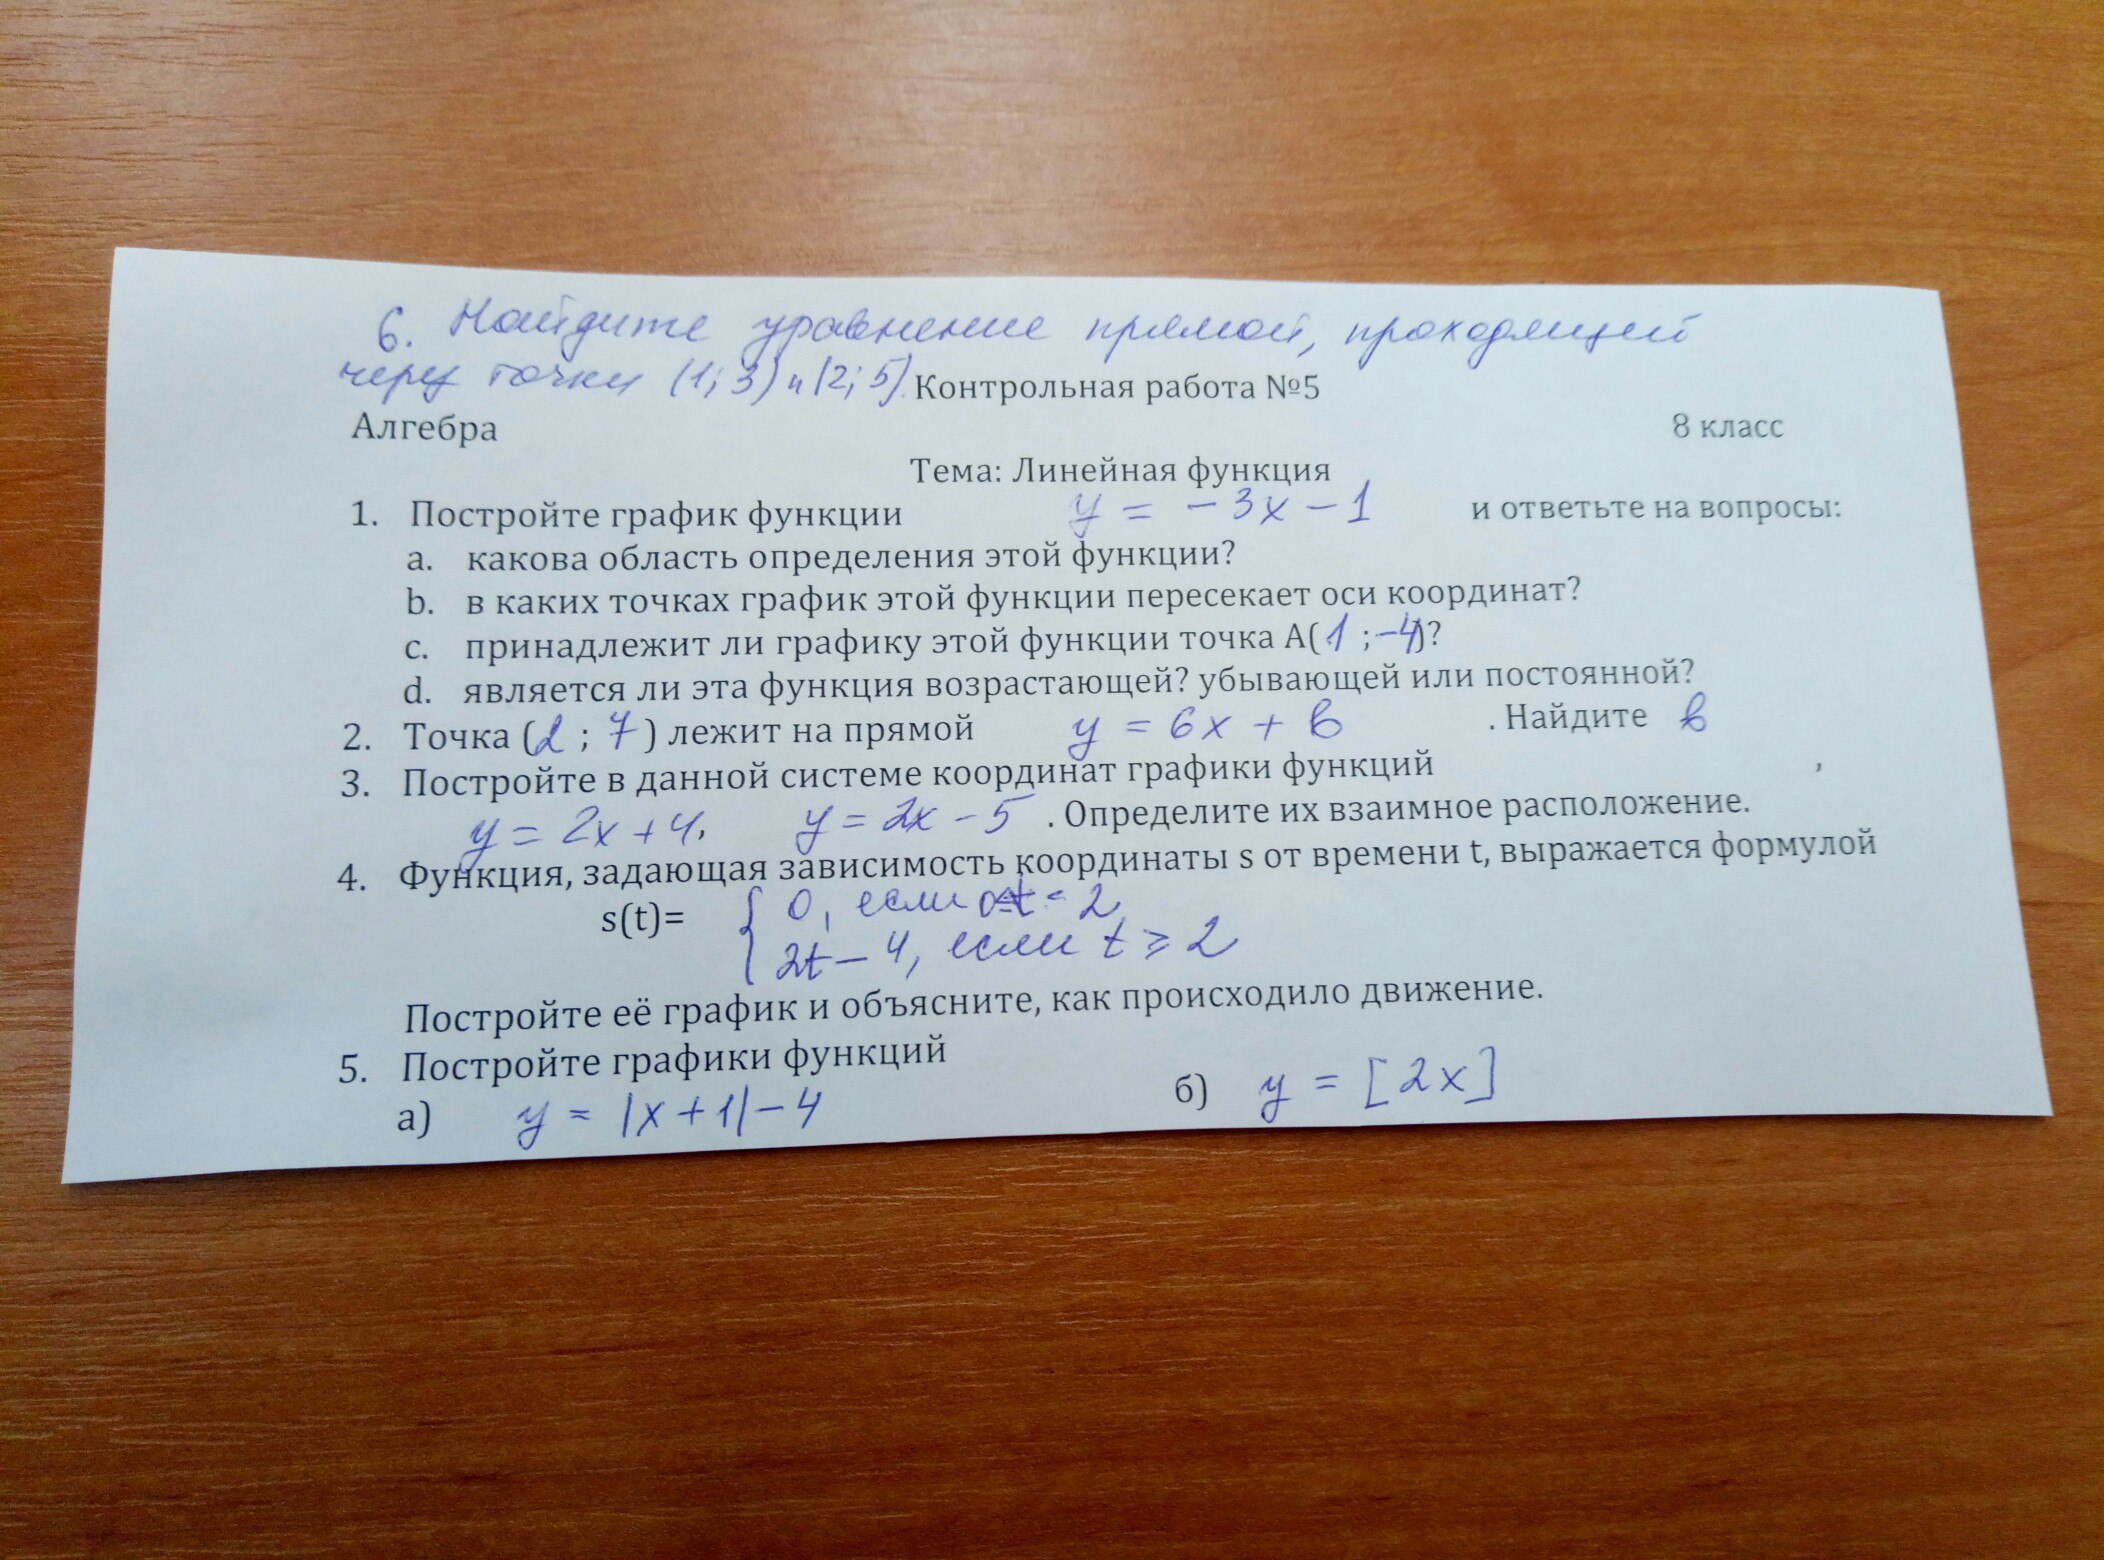 6. Найдите уравнение прямой, проходящей
через точки (1; 3) и (2; 5).
Контрольная работа №5
Алгебра 8 класс
Тема: Линейная функция
1. Постройте график функции y = -3x - 1 и ответьте на вопросы:
a. какова область определения этой функции?
b. в каких точках график этой функции пересекает оси координат?
c. принадлежит ли графику этой функции точка А(1 ; -4)?
d. является ли эта функция возрастающей? убывающей или постоянной?
2. Точка (2 ; 7) лежит на прямой y = 6x + b . Найдите b
3. Постройте в данной системе координат графики функций ,
y = 2x + 4, y = 2x - 5 . Определите их взаимное расположение.
4. Функция, задающая зависимость координаты s от времени t, выражается формулой
s(t)= { 0, если 0≤t< 2
2t - 4, если t ⩾ 2
Постройте её график и объясните, как происходило движение.
5. Постройте графики функций
а) y = |x + 1| - 4 б) y = [2x]